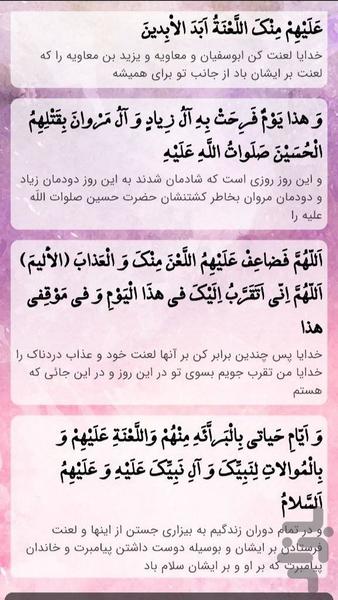 عَلَیْهِمْ مِنْکَ اللَّعْنَةُ اَبَدَ الاْبِدینَ
خدایا لعنت کن ابوسفیان و معاویه و یزید بن معاویه را که
لعنت بر ایشان باد از جانب تو برای همیشه
وَ هذا یَوْمٌ فَرِحَتْ بِهِ آلُ زِیادٍ وَ آلُ مَرْوانَ بِقَتْلِهِمُ
الْحُسَیْنَ صَلَواتُ اللَّهِ عَلَیْهِ
و این روز روزی است که شادمان شدند به این روز دودمان زیاد
و دودمان مروان بخاطر کشتنشان حضرت حسین صلوات اللَه
علیه را
اَللّهُمَّ فَضاعِفْ عَلَیْهِمُ اللَّعْنَ مِنْکَ وَ الْعَذابَ (الاْلیمَ)
اَللّهُمَّ اِنّی اَتَقَرَّبُ اِلَیْکَ فی هذَا الْیَوْمِ وَ فی مَوْقِفی
هذا
خدایا پس چندین برابر کن بر آنها لعنت خود و عذاب دردناک را
خدایا من تقرب جویم بسوی تو در این روز و در این جائی که
هستم
وَ اَیّامِ حَیاتی بِالْبَرائَهِ مِنْهُمْ وَاللَّعْنَةِ عَلَیْهِمْ وَ
بِالْمُوالاتِ لِنَبِیِّکَ وَ آلِ نَبِیِّکَ عَلَیْهِ وَ عَلَیْهِمُ
اَلسَّلامُ
و در تمام دوران زندگیم به بیزاری جستن از اینها و لعنت
فرستادن بر ایشان و بوسیله دوست داشتن پیامبرت و خاندان
پیامبرت که بر او و بر ایشان سلام باد